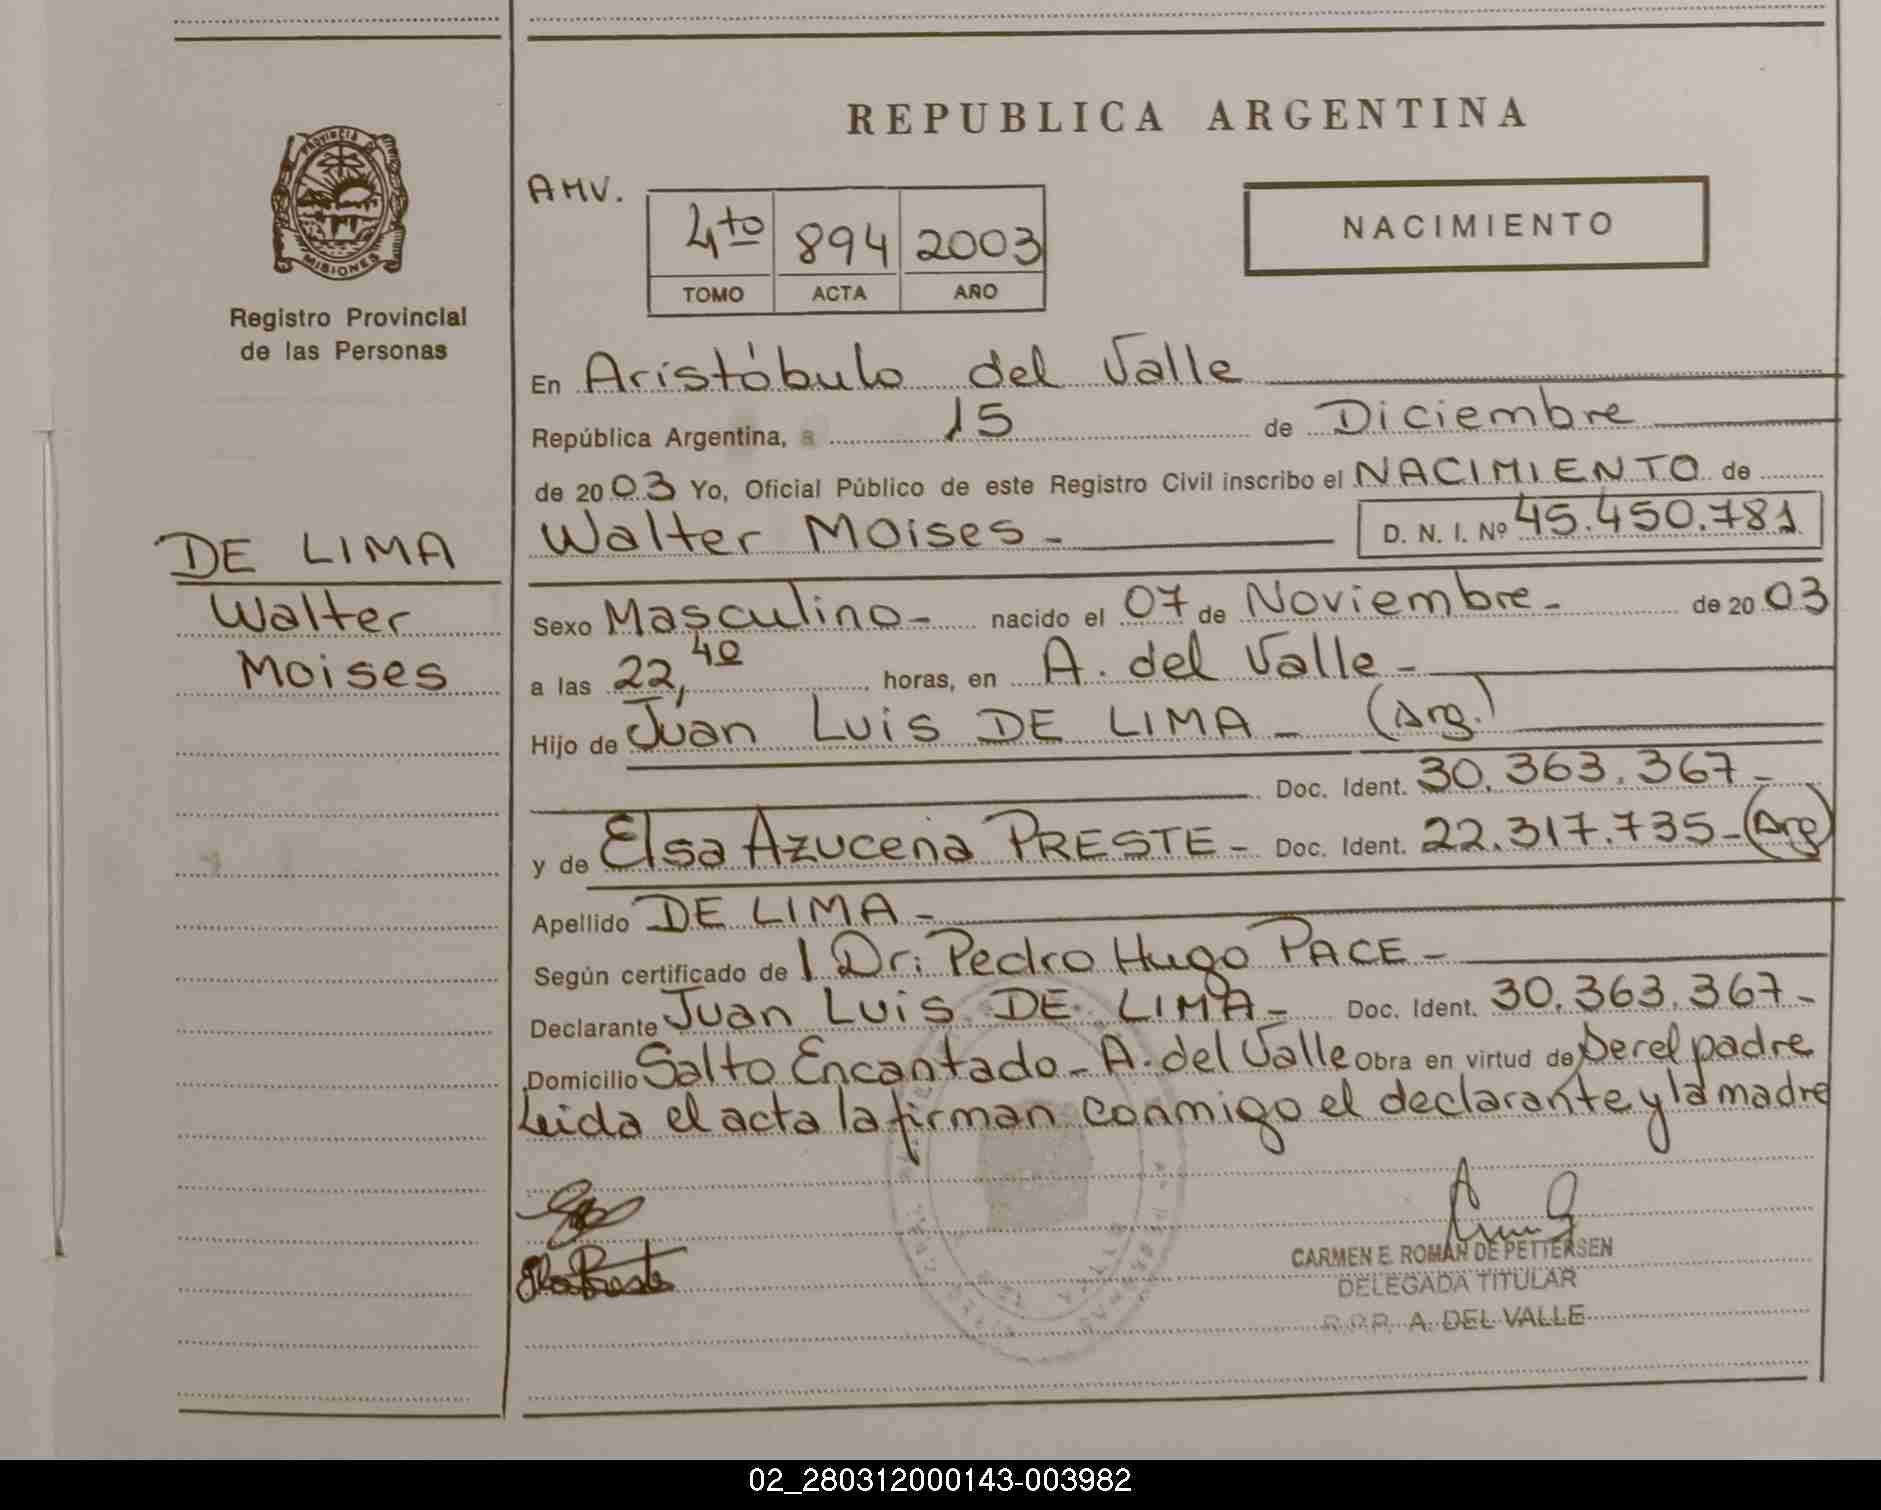 REPUBLICA ARGENTINA
PROVINCIA DE
MISIONES
Registro Provincial
de las Personas
AMV.
4to 894 2003
TOMO ACTA AÑO
NACIMIENTO
En Aristóbulo del Valle
República Argentina, a 15 de Diciembre
de 2003 Yo, Oficial Público de este Registro Civil inscribo el NACIMIENTO de
Walter Moises - D. N. I. Nº 45.450.781
DE LIMA
Walter
Moises
Sexo Masculino - nacido el 07 de Noviembre - de 2003
a las 22,40 horas, en A. del Valle -
Hijo de Juan Luis DE LIMA - (Arg.)
Doc. Ident. 30.363.367 -
y de Elsa Azucena PRESTE - Doc. Ident. 22.317.735 - (Arg)
Apellido DE LIMA -
Según certificado de l Dr: Pedro Hugo PACE -
Declarante Juan Luis DE LIMA - Doc. Ident. 30.363.367 -
Domicilio Salto Encantado - A. del Valle Obra en virtud de Ser el padre
Leida el acta la firman conmigo el declarante y la madre
CARMEN E. ROMAN DE PETTERSEN
DELEGADA TITULAR
R.P.P. A. DEL VALLE
02_280312000143-003982